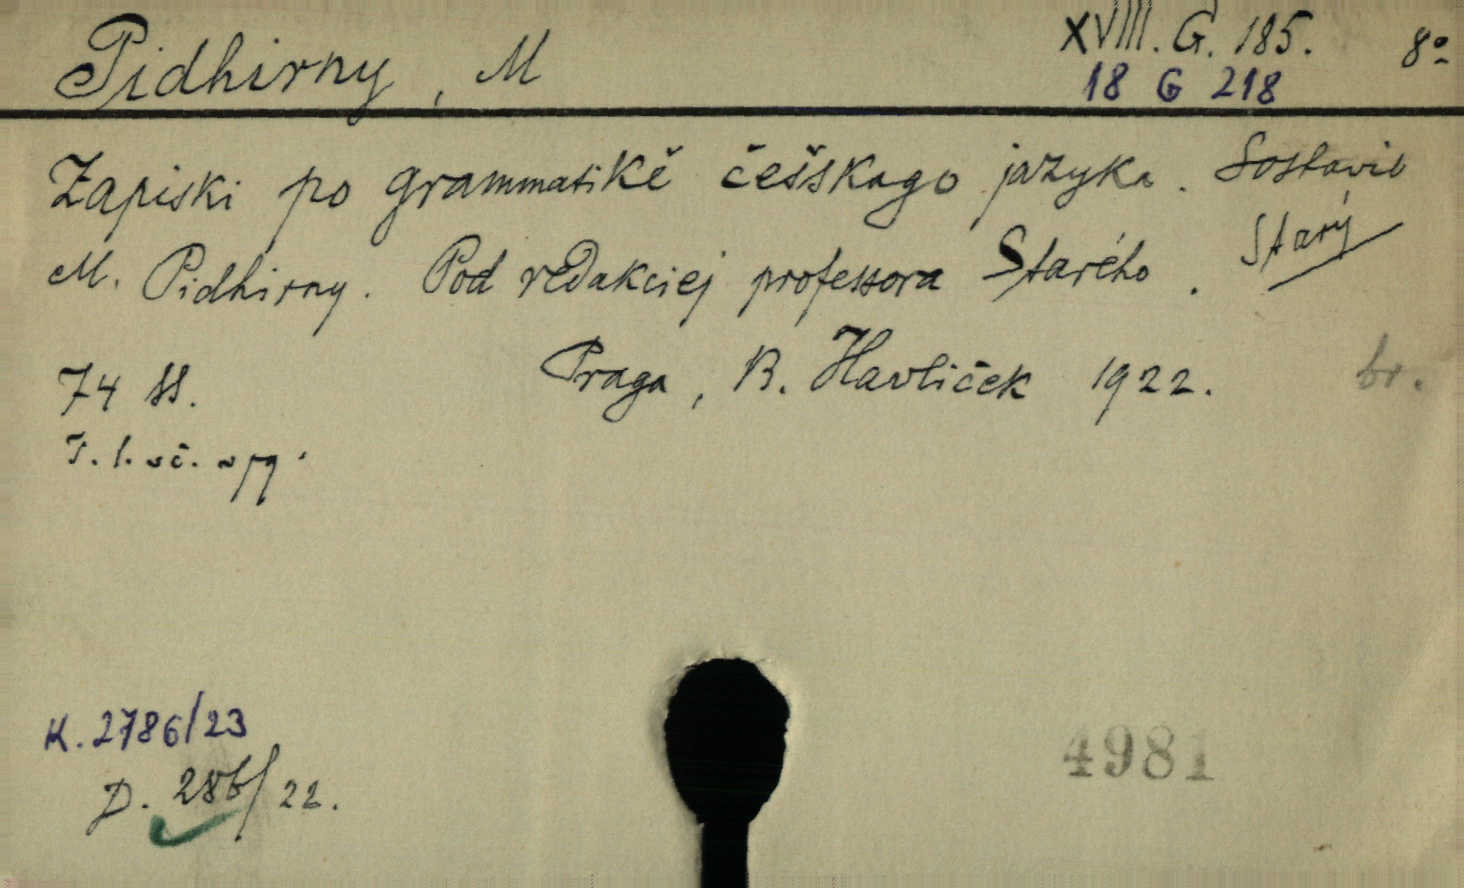 Pidhirny, M
XVIII. G. 185. 8°
18 G 218
Zapiski po grammatikě češskago jazyka. Sostavil
M. Pidhirny. Pod redakciej professora Starého. Starý
Praga, B. Havlíček 1922. br.
74 SS.
K. 2786/23
D. 286/22.
4981